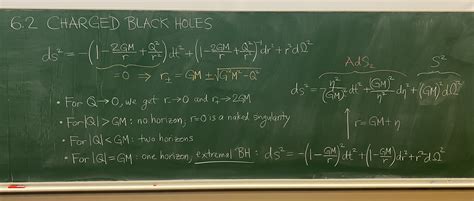 6.2 CHARGED BLACK HOLES
ds² = -(1 - 2GM/r + Q²/r²)dt² + (1 - 2GM/r + Q²/r²)⁻¹dr² + r²dΩ²
= 0 ⇒ r± = GM ± √(G²M² - Q²)
• For Q → 0, we get r₋ → 0 and r₊ → 2GM
• For |Q| > GM: no horizon, r=0 is a naked singularity
• For |Q| < GM: two horizons
• For |Q| = GM: one horizon, extremal BH: ds² = -(1 - GM/r)²dt² + (1 - GM/r)⁻²dr² + r²dΩ²
AdS₂ S²
ds² = -η²/(GM)² dt² + (GM)²/η² dη² + (GM)²dΩ²
↑ r = GM + η